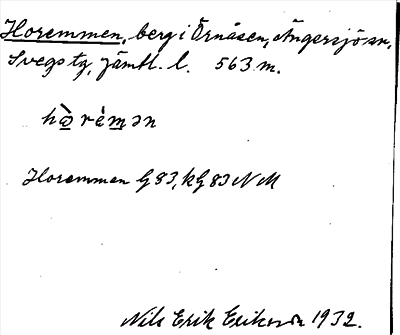 Horemmen, berg i Örnåsen, Ängersjö sn,
Svegs tg, Jämtl. l. 563 m.
hò̱rém̱ən
Horemmen G 83, kG 83 N M
Nils Erik Erikson 1932.